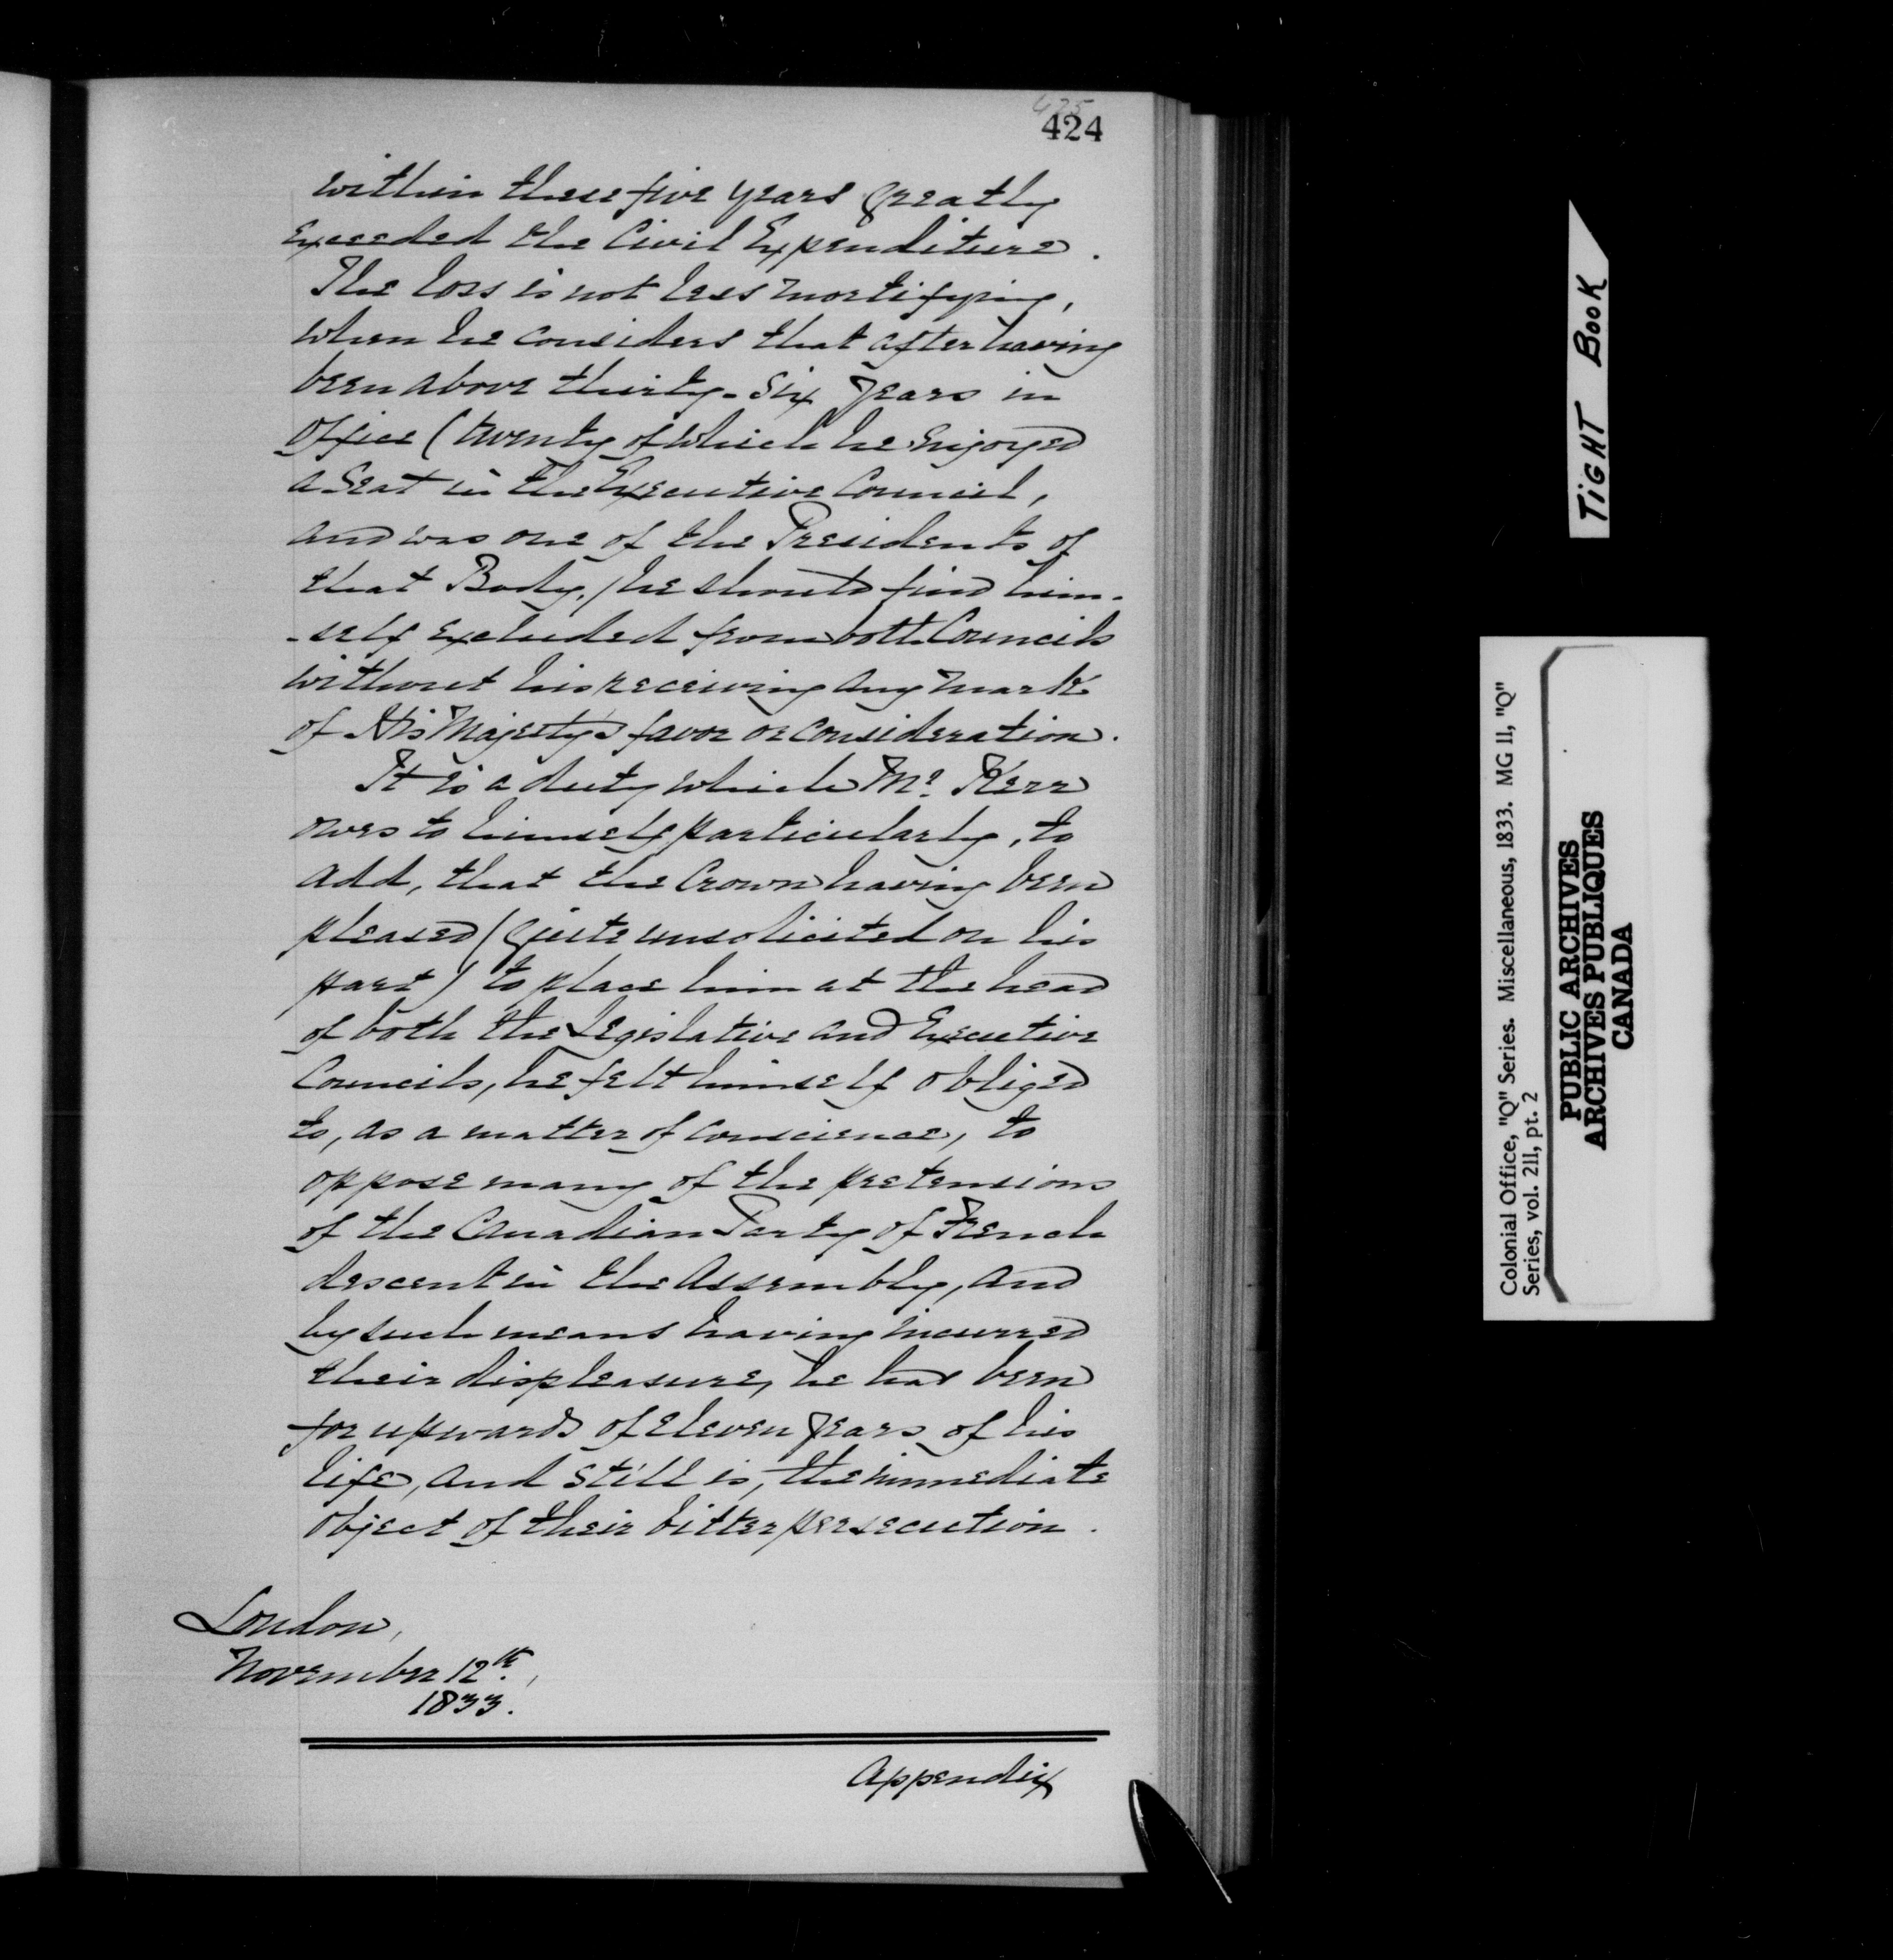 425
424
within these five years greatly
exceeded the Civil Expenditure.
The loss is not less mortifying,
when he considers that after having
been above thirty-six years in
office (twenty of which he enjoyed
a seat in the Executive Council,
and was one of the Presidents of
that Body,) he should find him-
-self excluded from both Councils
without his receiving any mark
of His Majesty's favor or consideration.
It is a duty which Mr. Kerr
owes to himself particularly, to
add, that the Crown having been
pleased (quite unsolicited on his
part) to place him at the head
of both the Legislative and Executive
Councils, he felt himself obliged
to, as a matter of conscience, to
oppose many of the pretensions
of the Canadian Party of French
descent in the Assembly, and
by such means having incurred
their displeasure, he has been
for upwards of eleven years of his
life, and still is, the immediate
object of their bitter persecution.
London,
November 12th,
1833.
Appendix
TIGHT BOOK
Colonial Office, "Q" Series. Miscellaneous, 1833. MG 11, "Q"
Series, vol. 211, pt. 2
PUBLIC ARCHIVES
ARCHIVES PUBLIQUES
CANADA